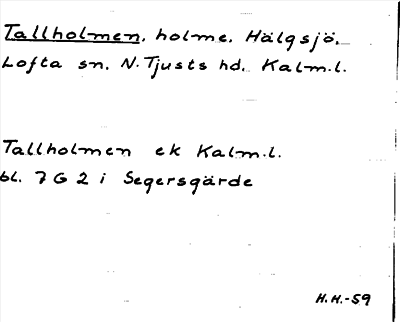 Tallholmen, holme, Hälgsjö,
Lofta sn, N. Tjusts hd, Kalm.l.
Tallholmen ek Kalm.l.
bl. 7 G 2 i Segersgärde
H.H.-59